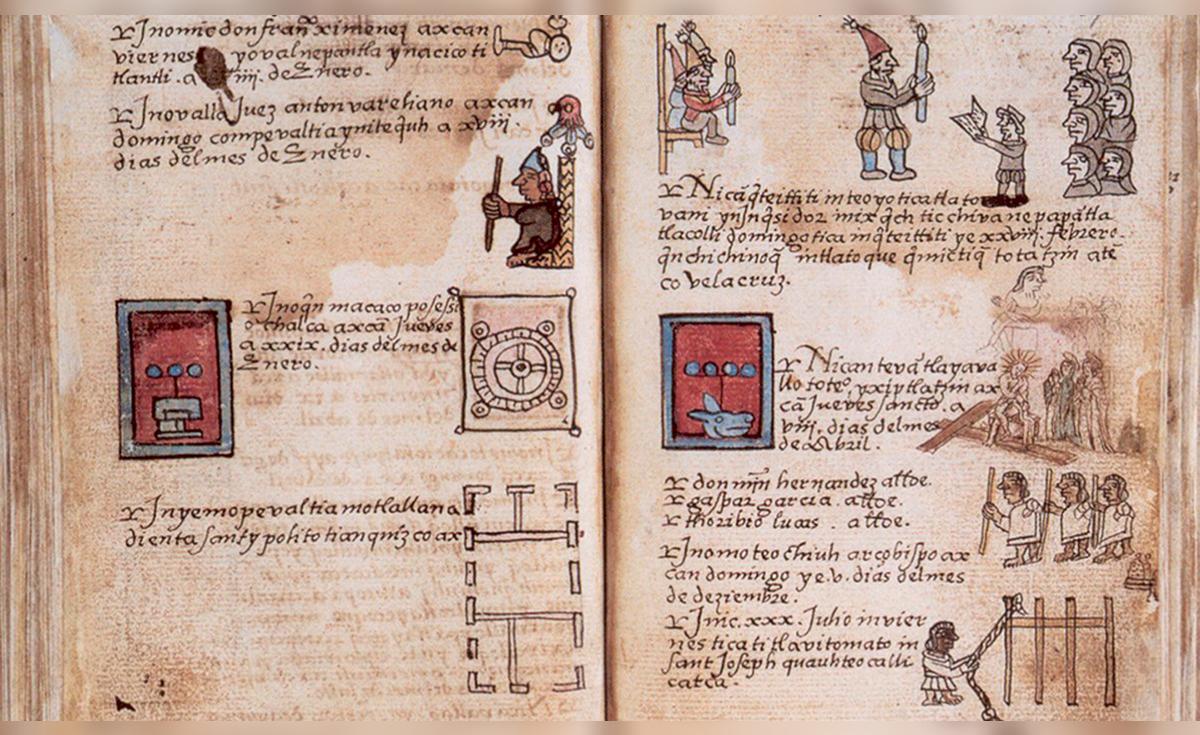 Inomic don fran ximenez axcan
viernes yovalnepantla ynacico ti
tlantli. a iiij. de Enero.
Inovalla Juez anton vareliano axcan
domingo compevaltia ynitequh a xviij.
dias del mes de Enero.
Inoqn macaco posessi
o chalca axcā Jueves
a xxix. dias del mes de
Enero.
In yemopevaltia motlallana
dienta santy polito tianquizco ax
Nicā q̄teittiti in teoyotica tlato
vani ynInqsidor mixq̄ch tic chiva nepapātla
tlacolli domingo tica inq̄teittiti ye xxviij. febrero.
qn chichinoq̄ intlatoque
co velacruz.
Nican tevātlayava
llo toteo. yxiptlatzin ax
cā Jueves sancto. a
viij. dias del mes
de Abril.
don mīn hernandez allde.
gaspar garcia. allde.
thoribio lucas. allde.
Inomoteochiuh arçobispo ax
can domingo ye.v. dias del mes
de deziembre.
Inic.xxx. Julio in vier
nes tica titlavitomato in
sant Joseph quauhteocalli
catca.